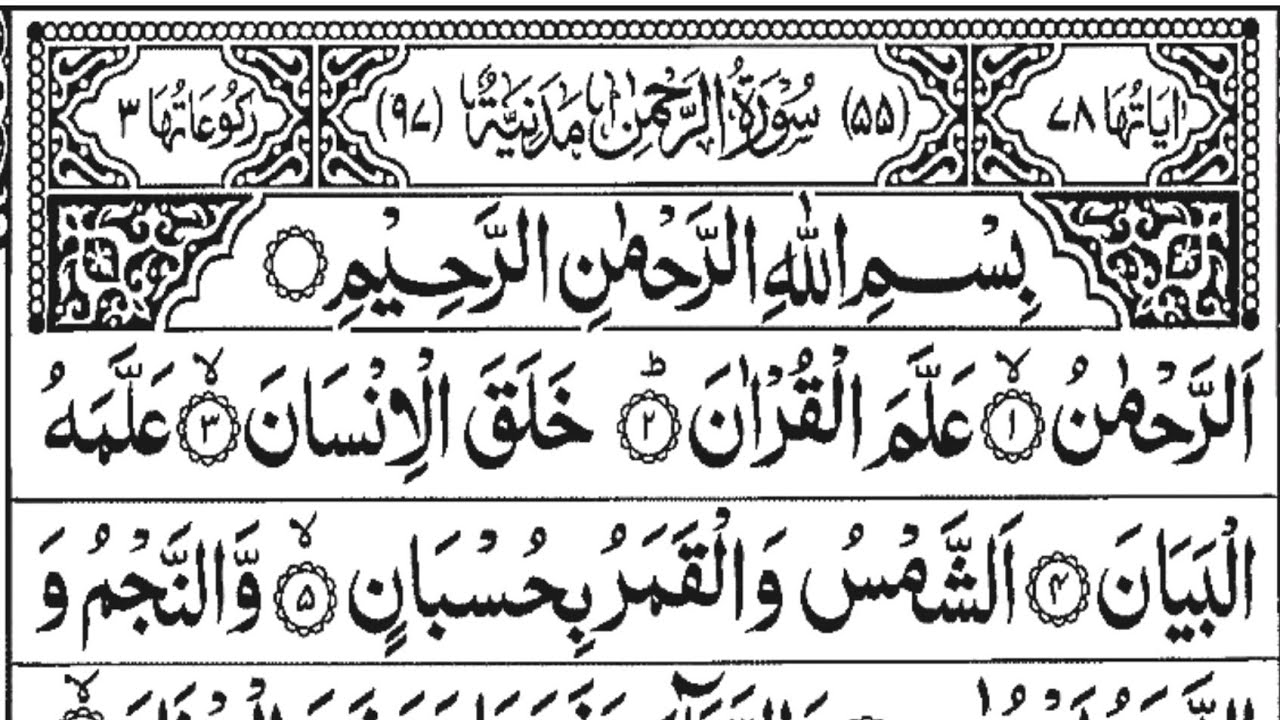 اٰيَاتُهَا ٧٨ (٥٥) سُوْرَةُ الرَّحْمٰنِ مَدَنِيَّةٌ (٩٧) رَكُوْعَاتُهَا ٣
بِسْمِ اللّٰهِ الرَّحْمٰنِ الرَّحِيْمِ
اَلرَّحْمٰنُ ۙ﴿١﴾ عَلَّمَ الْقُرْاٰنَ ؕ﴿٢﴾ خَلَقَ الْاِنْسَانَ ۙ﴿٣﴾ عَلَّمَهُ
الْبَيَانَ ﴿۴﴾ اَلشَّمْسُ وَالْقَمَرُ بِحُسْبَانٍ ۙ﴿۵﴾ وَّالنَّجْمُ وَ